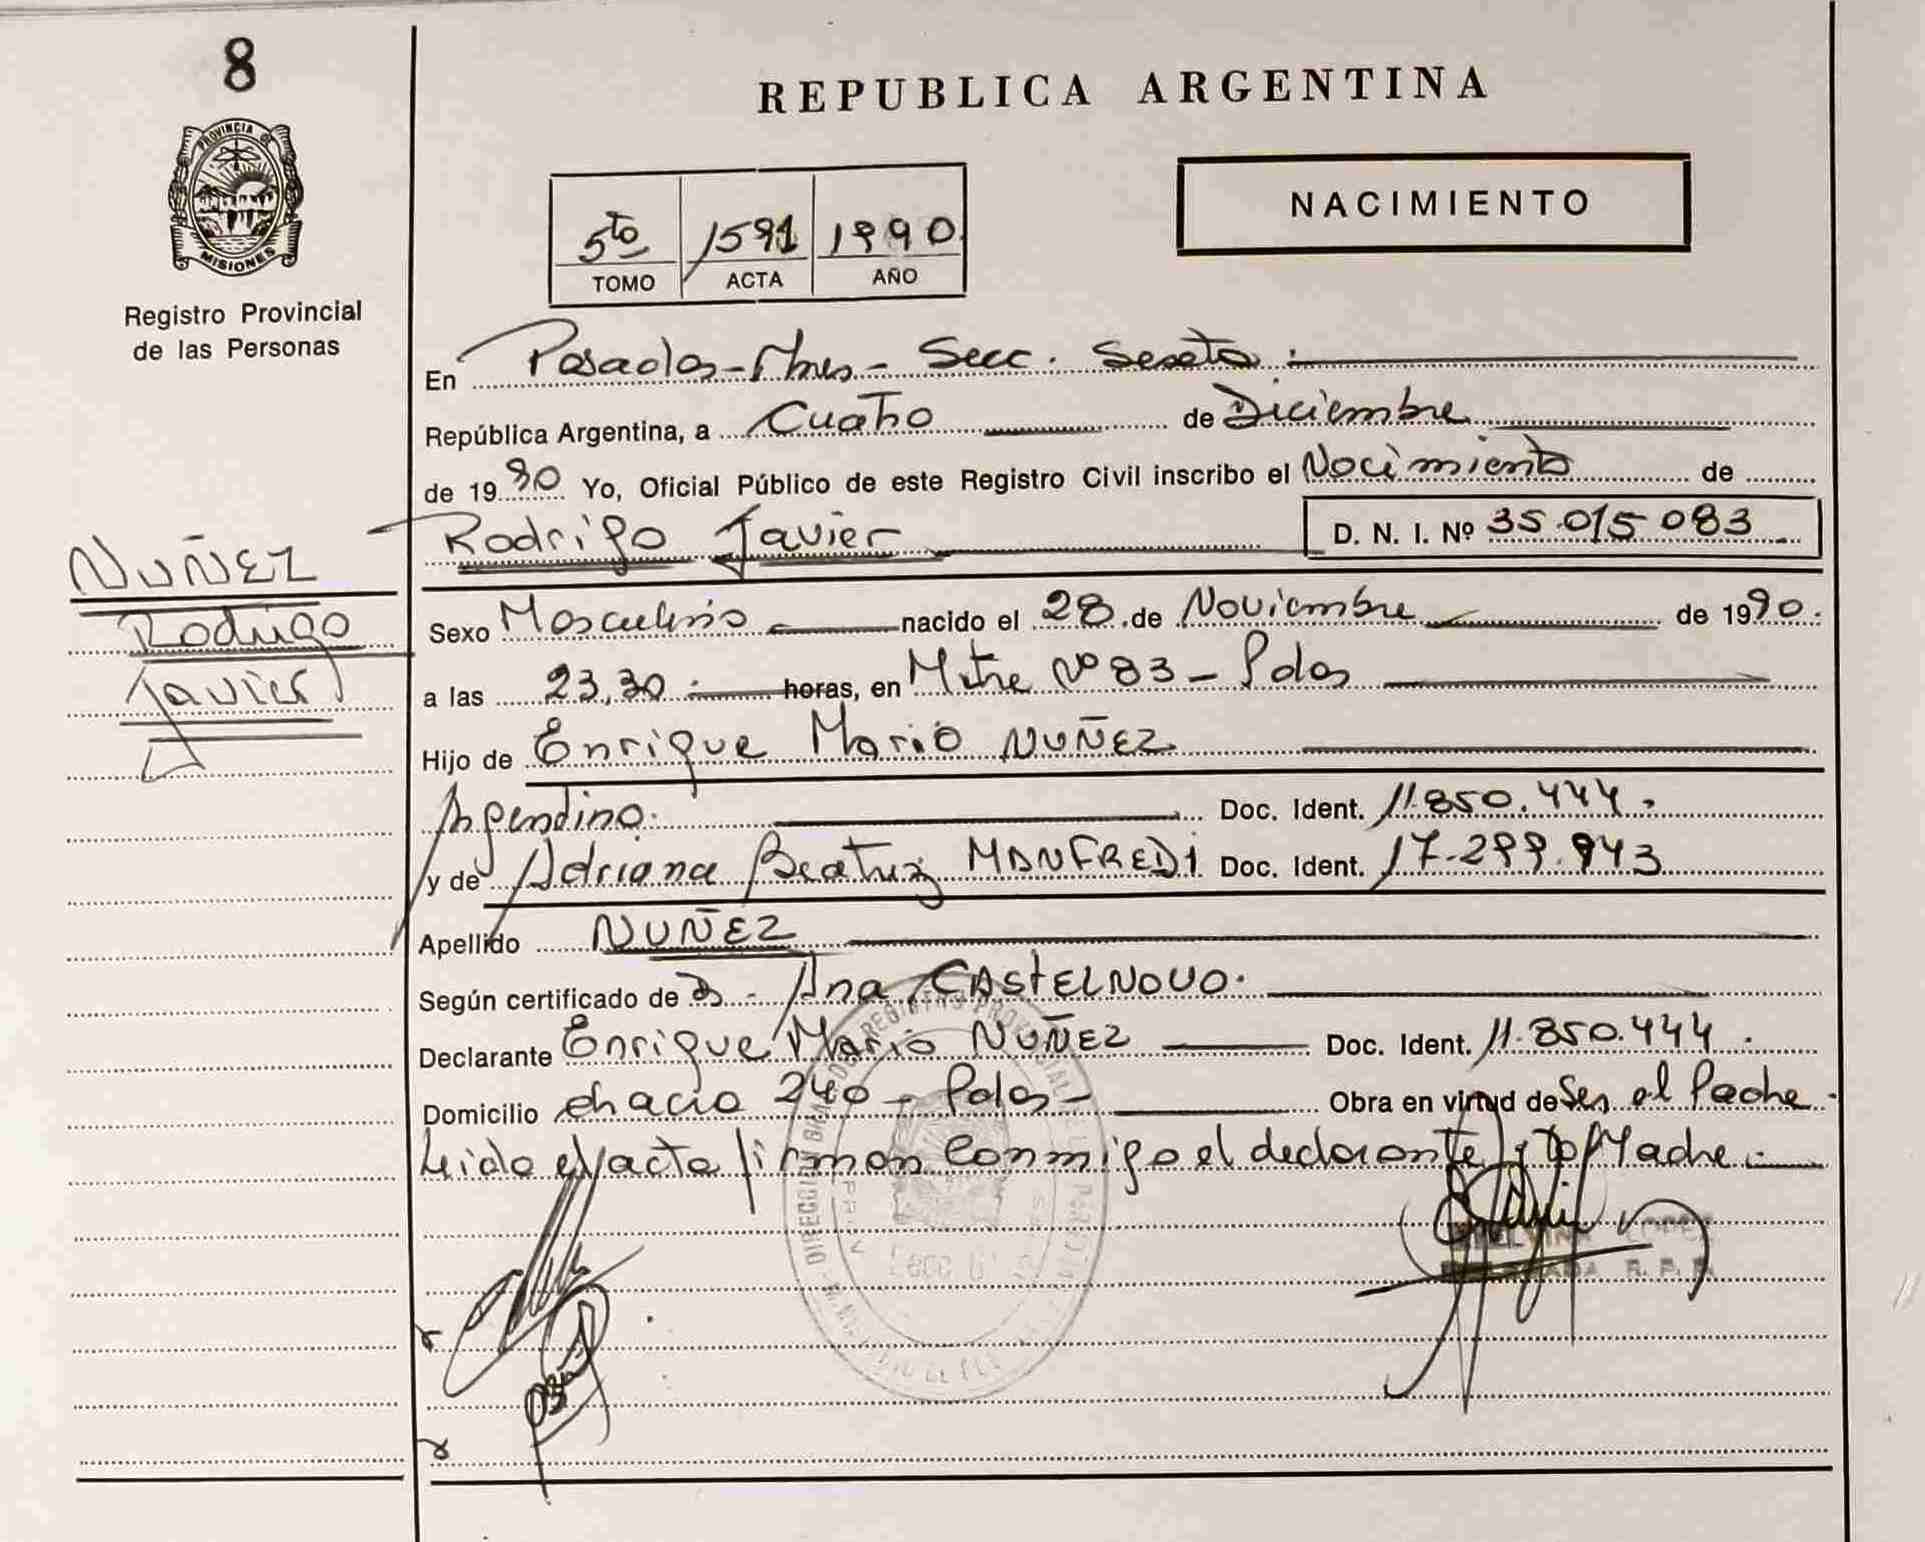 8
PROVINCIA DE
MISIONES
Registro Provincial
de las Personas
NUÑEZ
Rodrigo
Javier
REPUBLICA ARGENTINA
NACIMIENTO
5to 1591 1990
TOMO ACTA AÑO
En Posadas - Mnes - Secc. Sexta
República Argentina, a Cuatro de Diciembre
de 1990 Yo, Oficial Público de este Registro Civil inscribo el Nacimiento de
Rodrigo Javier D. N. I. Nº 35.015.083
Sexo Masculino nacido el 28 de Noviembre de 1990.
a las 23,30 horas, en Mitre Nº 83 - Pdas
Hijo de Enrique Mario NUÑEZ
Argentino. Doc. Ident. 11.850.444.
y de Adriana Beatriz MANFREDI Doc. Ident. 17.299.943
Apellido NUÑEZ
Según certificado de Ana CASTELNOVO.
Declarante Enrique Mario NUÑEZ Doc. Ident. 11.850.444.
Domicilio chaco 240 - Pdas - Obra en virtud de Ser el Padre.
Leida el acta firman conmigo el declarante y la Madre.